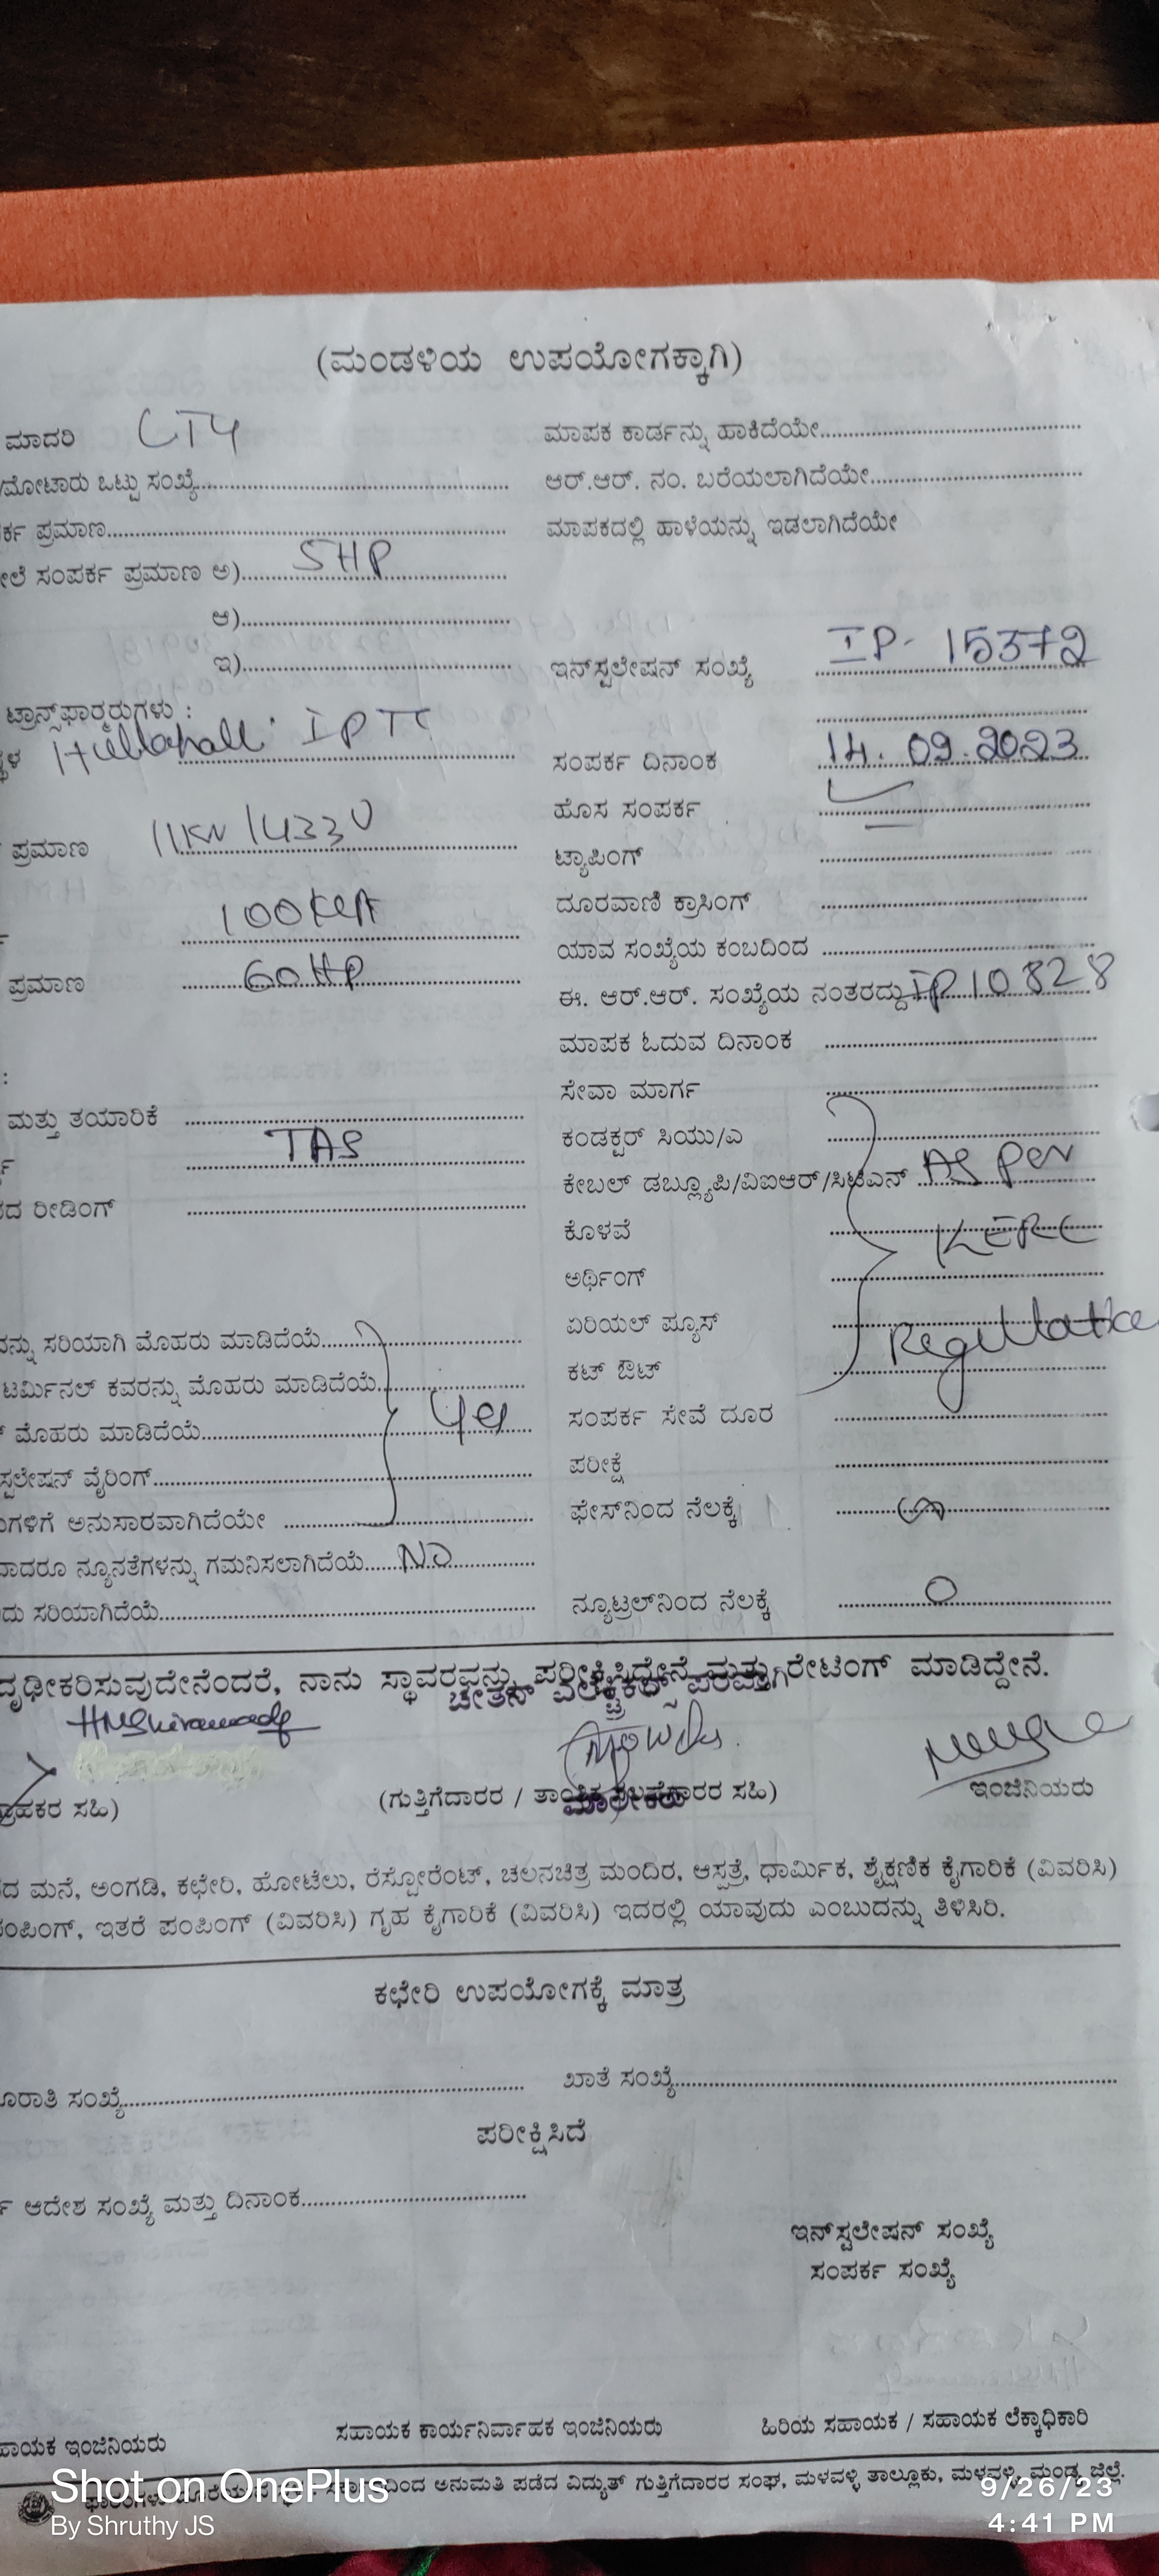 (ಮಂಡಳಿಯ ಉಪಯೋಗಕ್ಕಾಗಿ)
ಮಾದರಿ LT4 ಮಾಪಕ ಕಾರ್ಡನ್ನು ಹಾಕಿದೆಯೇ
/ಮೋಟಾರು ಒಟ್ಟು ಸಂಖ್ಯೆ ಆರ್.ಆರ್. ನಂ. ಬರೆಯಲಾಗಿದೆಯೇ
ರ್ಕ ಪ್ರಮಾಣ ಮಾಪಕದಲ್ಲಿ ಹಾಳೆಯನ್ನು ಇಡಲಾಗಿದೆಯೇ
ೇಲೆ ಸಂಪರ್ಕ ಪ್ರಮಾಣ ಅ) 5HP
ಆ)
ಇ) ಇನ್‌ಸ್ಟಲೇಷನ್ ಸಂಖ್ಯೆ IP-15372
ಟ್ರಾನ್ಸ್‌ಫಾರ್ಮರುಗಳು :
ಳ Hullahalli IP TC ಸಂಪರ್ಕ ದಿನಾಂಕ 14.09.2023
ಹೊಸ ಸಂಪರ್ಕ
ಪ್ರಮಾಣ 11KV/433V ಟ್ಯಾಪಿಂಗ್
100KVA ದೂರವಾಣಿ ಕ್ರಾಸಿಂಗ್
ಯಾವ ಸಂಖ್ಯೆಯ ಕಂಬದಿಂದ
ಪ್ರಮಾಣ 60HP ಈ. ಆರ್.ಆರ್. ಸಂಖ್ಯೆಯ ನಂತರದ್ದು IP10828
ಮಾಪಕ ಓದುವ ದಿನಾಂಕ
: ಸೇವಾ ಮಾರ್ಗ
ಮತ್ತು ತಯಾರಿಕೆ ಕಂಡಕ್ಟರ್ ಸಿಯು/ಎ
TAS ಕೇಬಲ್ ಡಬ್ಲ್ಯೂಪಿ/ವಿಐಆರ್/ಸಿಟಿಎನ್ AS Per
ದ ರೀಡಿಂಗ್ ಕೊಳವೆ KERC
ಅರ್ಥಿಂಗ್
ಏರಿಯಲ್ ಪ್ಯೂಸ್ Regulation
ನ್ನು ಸರಿಯಾಗಿ ಮೊಹರು ಮಾಡಿದೆಯೆ ಕಟ್ ಔಟ್
ಟರ್ಮಿನಲ್ ಕವರನ್ನು ಮೊಹರು ಮಾಡಿದೆಯೆ ಸಂಪರ್ಕ ಸೇವೆ ದೂರ
ಮೊಹರು ಮಾಡಿದೆಯೆ Yes ಪರೀಕ್ಷೆ
ಸ್ಟಲೇಷನ್ ವೈರಿಂಗ್ ಫೇಸ್‌ನಿಂದ ನೆಲಕ್ಕೆ
ಗಳಿಗೆ ಅನುಸಾರವಾಗಿದೆಯೇ
ವಾದರೂ ನ್ಯೂನತೆಗಳನ್ನು ಗಮನಿಸಲಾಗಿದೆಯೆ No
ದು ಸರಿಯಾಗಿದೆಯೆ ನ್ಯೂಟ್ರಲ್‌ನಿಂದ ನೆಲಕ್ಕೆ 0
ದೃಢೀಕರಿಸುವುದೇನೆಂದರೆ, ನಾನು ಸ್ಥಾವರವನ್ನು ಪರೀಕ್ಷಿಸಿದ್ದೇನೆ ಮತ್ತು ರೇಟಿಂಗ್ ಮಾಡಿದ್ದೇನೆ.
ಚೇತನ್ ಎಲೆಕ್ಟ್ರಿಕಲ್ಸ್ ಪರವಾಗಿ
ಗ್ರಾಹಕರ ಸಹಿ) (ಗುತ್ತಿಗೆದಾರರ / ತಾಂತ್ರಿಕ ಸಲಹೆಗಾರರ ಸಹಿ) ಇಂಜಿನಿಯರು
ಮಾಲೀಕರು
ದ ಮನೆ, ಅಂಗಡಿ, ಕಛೇರಿ, ಹೋಟೆಲು, ರೆಸ್ಟೋರೆಂಟ್, ಚಲನಚಿತ್ರ ಮಂದಿರ, ಆಸ್ಪತ್ರೆ, ಧಾರ್ಮಿಕ, ಶೈಕ್ಷಣಿಕ ಕೈಗಾರಿಕೆ (ವಿವರಿಸಿ)
ಪಂಪಿಂಗ್, ಇತರೆ ಪಂಪಿಂಗ್ (ವಿವರಿಸಿ) ಗೃಹ ಕೈಗಾರಿಕೆ (ವಿವರಿಸಿ) ಇದರಲ್ಲಿ ಯಾವುದು ಎಂಬುದನ್ನು ತಿಳಿಸಿರಿ.
ಕಛೇರಿ ಉಪಯೋಗಕ್ಕೆ ಮಾತ್ರ
ರಾತಿ ಸಂಖ್ಯೆ ಖಾತೆ ಸಂಖ್ಯೆ
ಪರೀಕ್ಷಿಸಿದೆ
ಆದೇಶ ಸಂಖ್ಯೆ ಮತ್ತು ದಿನಾಂಕ
ಇನ್‌ಸ್ಟಲೇಷನ್ ಸಂಖ್ಯೆ
ಸಂಪರ್ಕ ಸಂಖ್ಯೆ
ಹಾಯಕ ಇಂಜಿನಿಯರು ಸಹಾಯಕ ಕಾರ್ಯನಿರ್ವಾಹಕ ಇಂಜಿನಿಯರು ಹಿರಿಯ ಸಹಾಯಕ / ಸಹಾಯಕ ಲೆಕ್ಕಾಧಿಕಾರಿ
ದಿಂದ ಅನುಮತಿ ಪಡೆದ ವಿದ್ಯುತ್ ಗುತ್ತಿಗೆದಾರರ ಸಂಘ, ಮಳವಳ್ಳಿ ತಾಲ್ಲೂಕು, ಮಳವಳ್ಳಿ, ಮಂಡ್ಯ ಜಿಲ್ಲೆ.
Shot on OnePlus 9/26/23
By Shruthy JS 4:41 PM